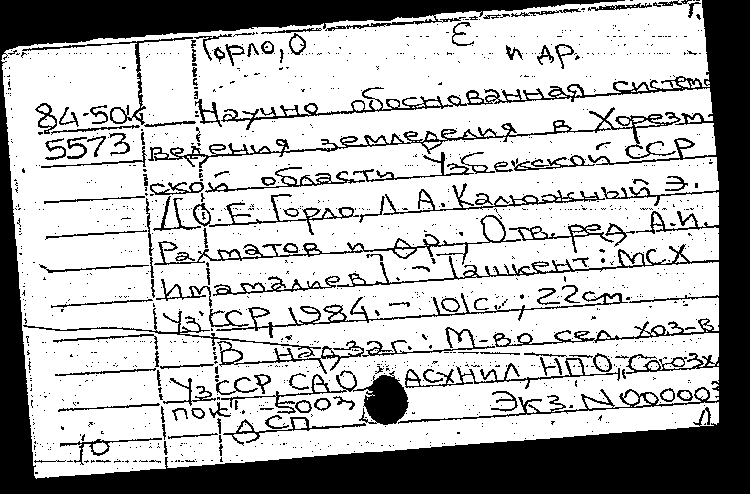 Горло, О Е
и др.
84-50к Научно обоснованная система
5573 ведения земледелия в Хорезм-
ской области Узбекской ССР
[О.Е. Горло, Л.А. Калюжный, Э.
Рахматов и др.; Отв. ред. А.И.
Иматалиев]. - Ташкент: МСХ
УзССР, 1984. - 101с.; 22см.
В надзаг.: М-во сел. хоз-в
УзССР, САО АСХНИЛ, НПО „Союзх
пок". -500э Экз. N 000003
ДСП
10